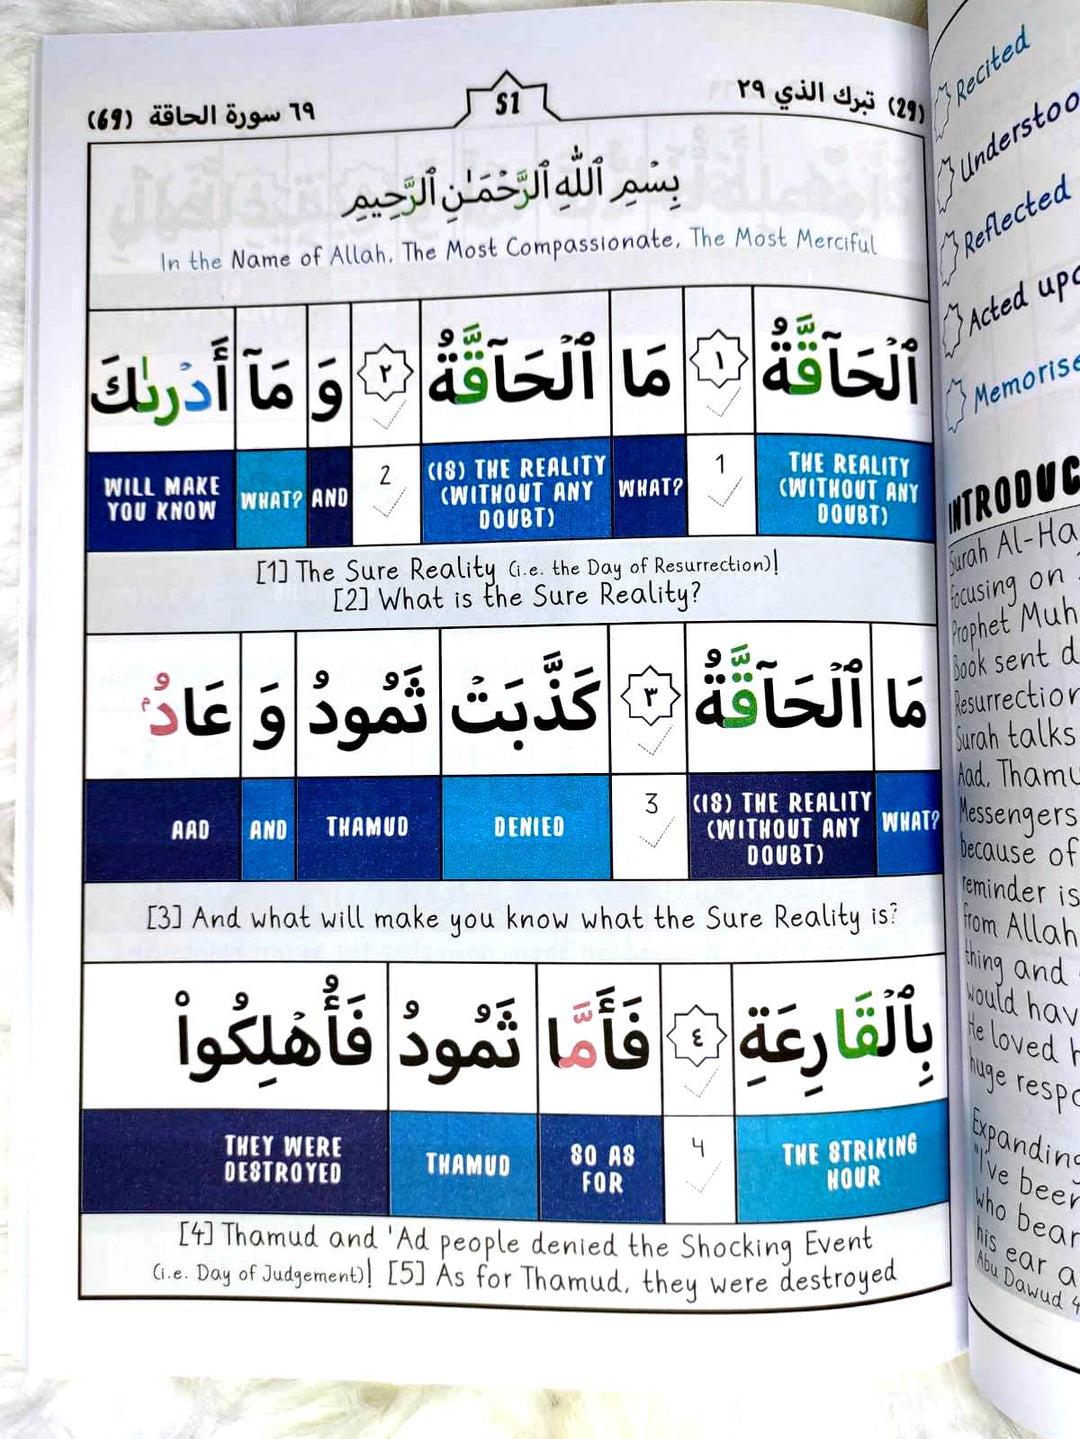 (29) تبرك الذي ٢٩
51
٦٩ سورة الحاقة (69)
بِسْمِ ٱللَّهِ ٱلرَّحْمَـٰنِ ٱلرَّحِيمِ
In the Name of Allah, The Most Compassionate, The Most Merciful
ٱلْحَآقَّةُ ١ مَا ٱلْحَآقَّةُ ٢ وَ مَآ أَدْرىٰكَ
THE REALITY (WITHOUT ANY DOUBT) 1 WHAT? (18) THE REALITY (WITHOUT ANY DOUBT) 2 AND WHAT? WILL MAKE YOU KNOW
[1] The Sure Reality (i.e. the Day of Resurrection)!
[2] What is the Sure Reality?
مَا ٱلْحَآقَّةُ ٣ كَذَّبَتْ ثَمُودُ وَ عَادُۢ
WHAT? (18) THE REALITY (WITHOUT ANY DOUBT) 3 DENIED THAMUD AND AAD
[3] And what will make you know what the Sure Reality is?
بِٱلْقَارِعَةِ ٤ فَأَمَّا ثَمُودُ فَأُهْلِكُواْ
THE STRIKING HOUR 4 SO AS FOR THAMUD THEY WERE DESTROYED
[4] Thamud and 'Ad people denied the Shocking Event
(i.e. Day of Judgement)! [5] As for Thamud, they were destroyed
Recited
Reflected
Acted
Surah
focusing on
Prophet
Book sent
Surah talks
Aad,
because of
reminder is
from Allah
thing and
would
He loved
huge
Expanding
"I've been
who
his ear
Abu Dawud